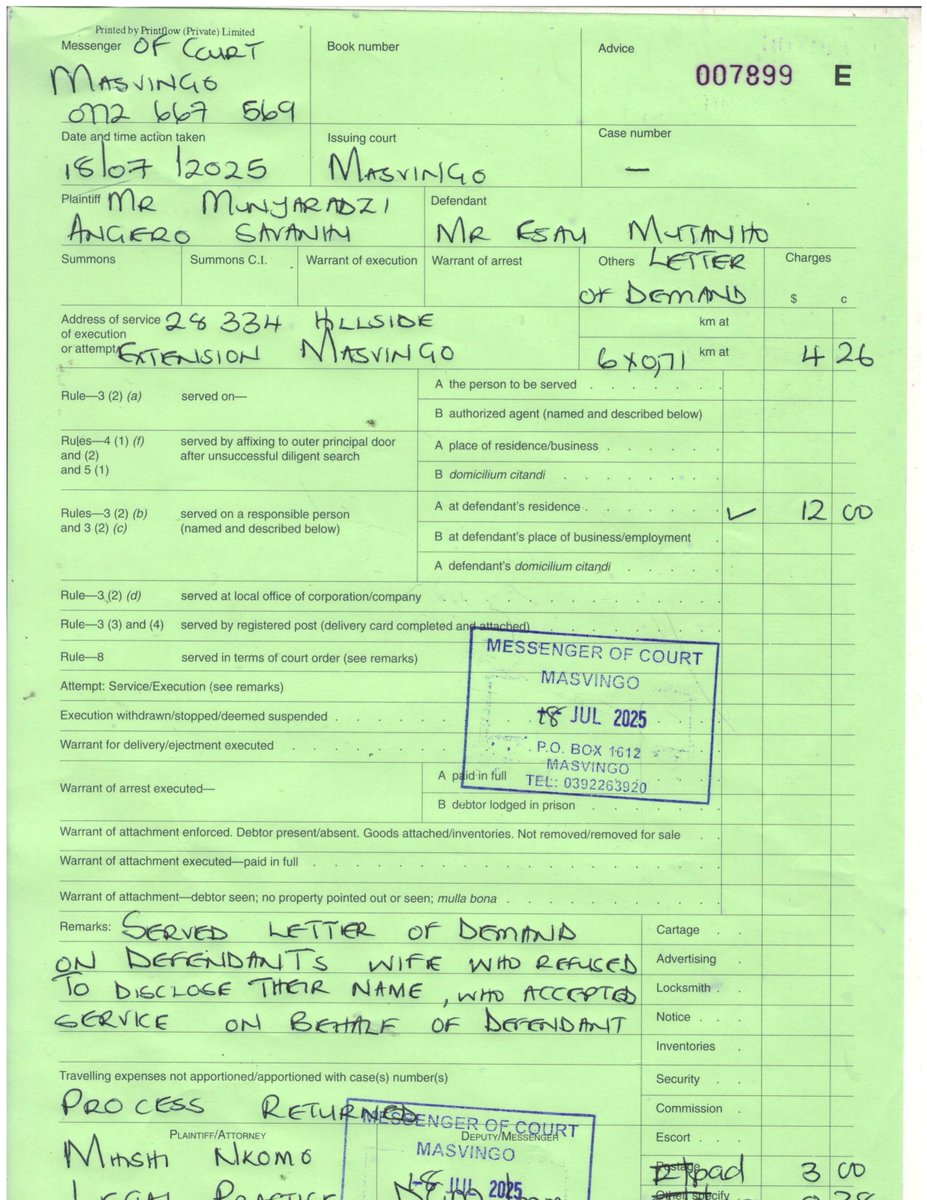 Printed by Printflow (Private) Limited
Messenger OF COURT
MASVINGO
0772 667 569
Book number
Advice
007899 E
Date and time action taken
18/07/2025
Issuing court
MASVINGO
Case number
—
Plaintiff MR MUNYARADZI
ANGERO
Defendant
MR ESAU MUTANHO
Summons
Summons C.I.
Warrant of execution
Warrant of arrest
Others LETTER
OF DEMAND
Charges
$ c
Address of service 28 334 HILLSIDE
of execution
or attempt EXTENSION MASVINGO
km at
6x0,71 km at 4 26
Rule—3 (2) (a) served on—
A the person to be served
B authorized agent (named and described below)
Rules—4 (1) (f) served by affixing to outer principal door
and (2) after unsuccessful diligent search
and 5 (1)
A place of residence/business
B domicilium citandi
Rules—3 (2) (b) served on a responsible person
and 3 (2) (c) (named and described below)
A at defendant's residence ✓ 12 00
B at defendant's place of business/employment
A defendant's domicilium citandi
Rule—3 (2) (d) served at local office of corporation/company
Rule—3 (3) and (4) served by registered post (delivery card completed and attached)
Rule—8 served in terms of court order (see remarks)
Attempt: Service/Execution (see remarks)
Execution withdrawn/stopped/deemed suspended
Warrant for delivery/ejectment executed
MESSENGER OF COURT
MASVINGO
18 JUL 2025
P.O. BOX 1612
MASVINGO
TEL: 0392263920
Warrant of arrest executed—
A paid in full
B debtor lodged in prison
Warrant of attachment enforced. Debtor present/absent. Goods attached/inventories. Not removed/removed for sale
Warrant of attachment executed—paid in full
Warrant of attachment—debtor seen; no property pointed out or seen; mulla bona
Remarks: SERVED LETTER OF DEMAND
ON DEFENDANT'S WIFE WHO REFUSED
TO DISCLOSE THEIR NAME, WHO ACCEPTED
SERVICE ON BEHALF OF DEFENDANT
Cartage
Advertising
Locksmith
Notice
Inventories
Travelling expenses not apportioned/apportioned with case(s) number(s)
PROCESS RETURNED
Security
Commission
Escort
PLAINTIFF/ATTORNEY
DEPUTY/MESSENGER
MESSENGER OF COURT
MASVINGO
18 JUL 2025
NKOMO
LEGAL PRACTICE
Postage 3 00
Other specify